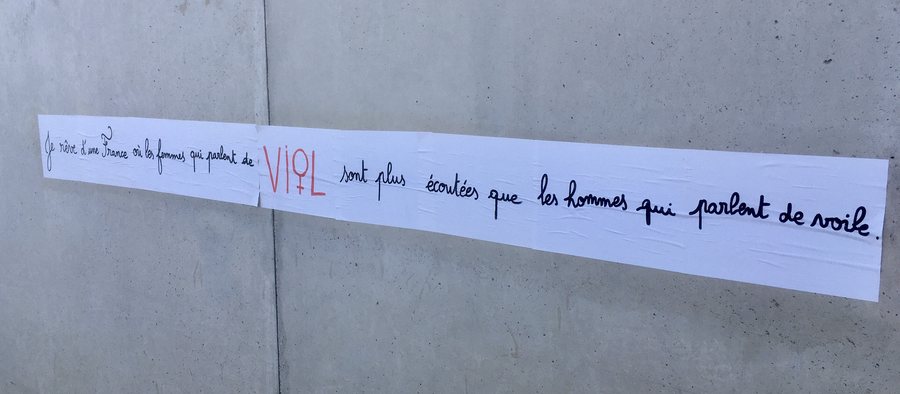 Je rêve d'une France où les femmes qui parlent de VIOL sont plus écoutées que les hommes qui parlent de voile.